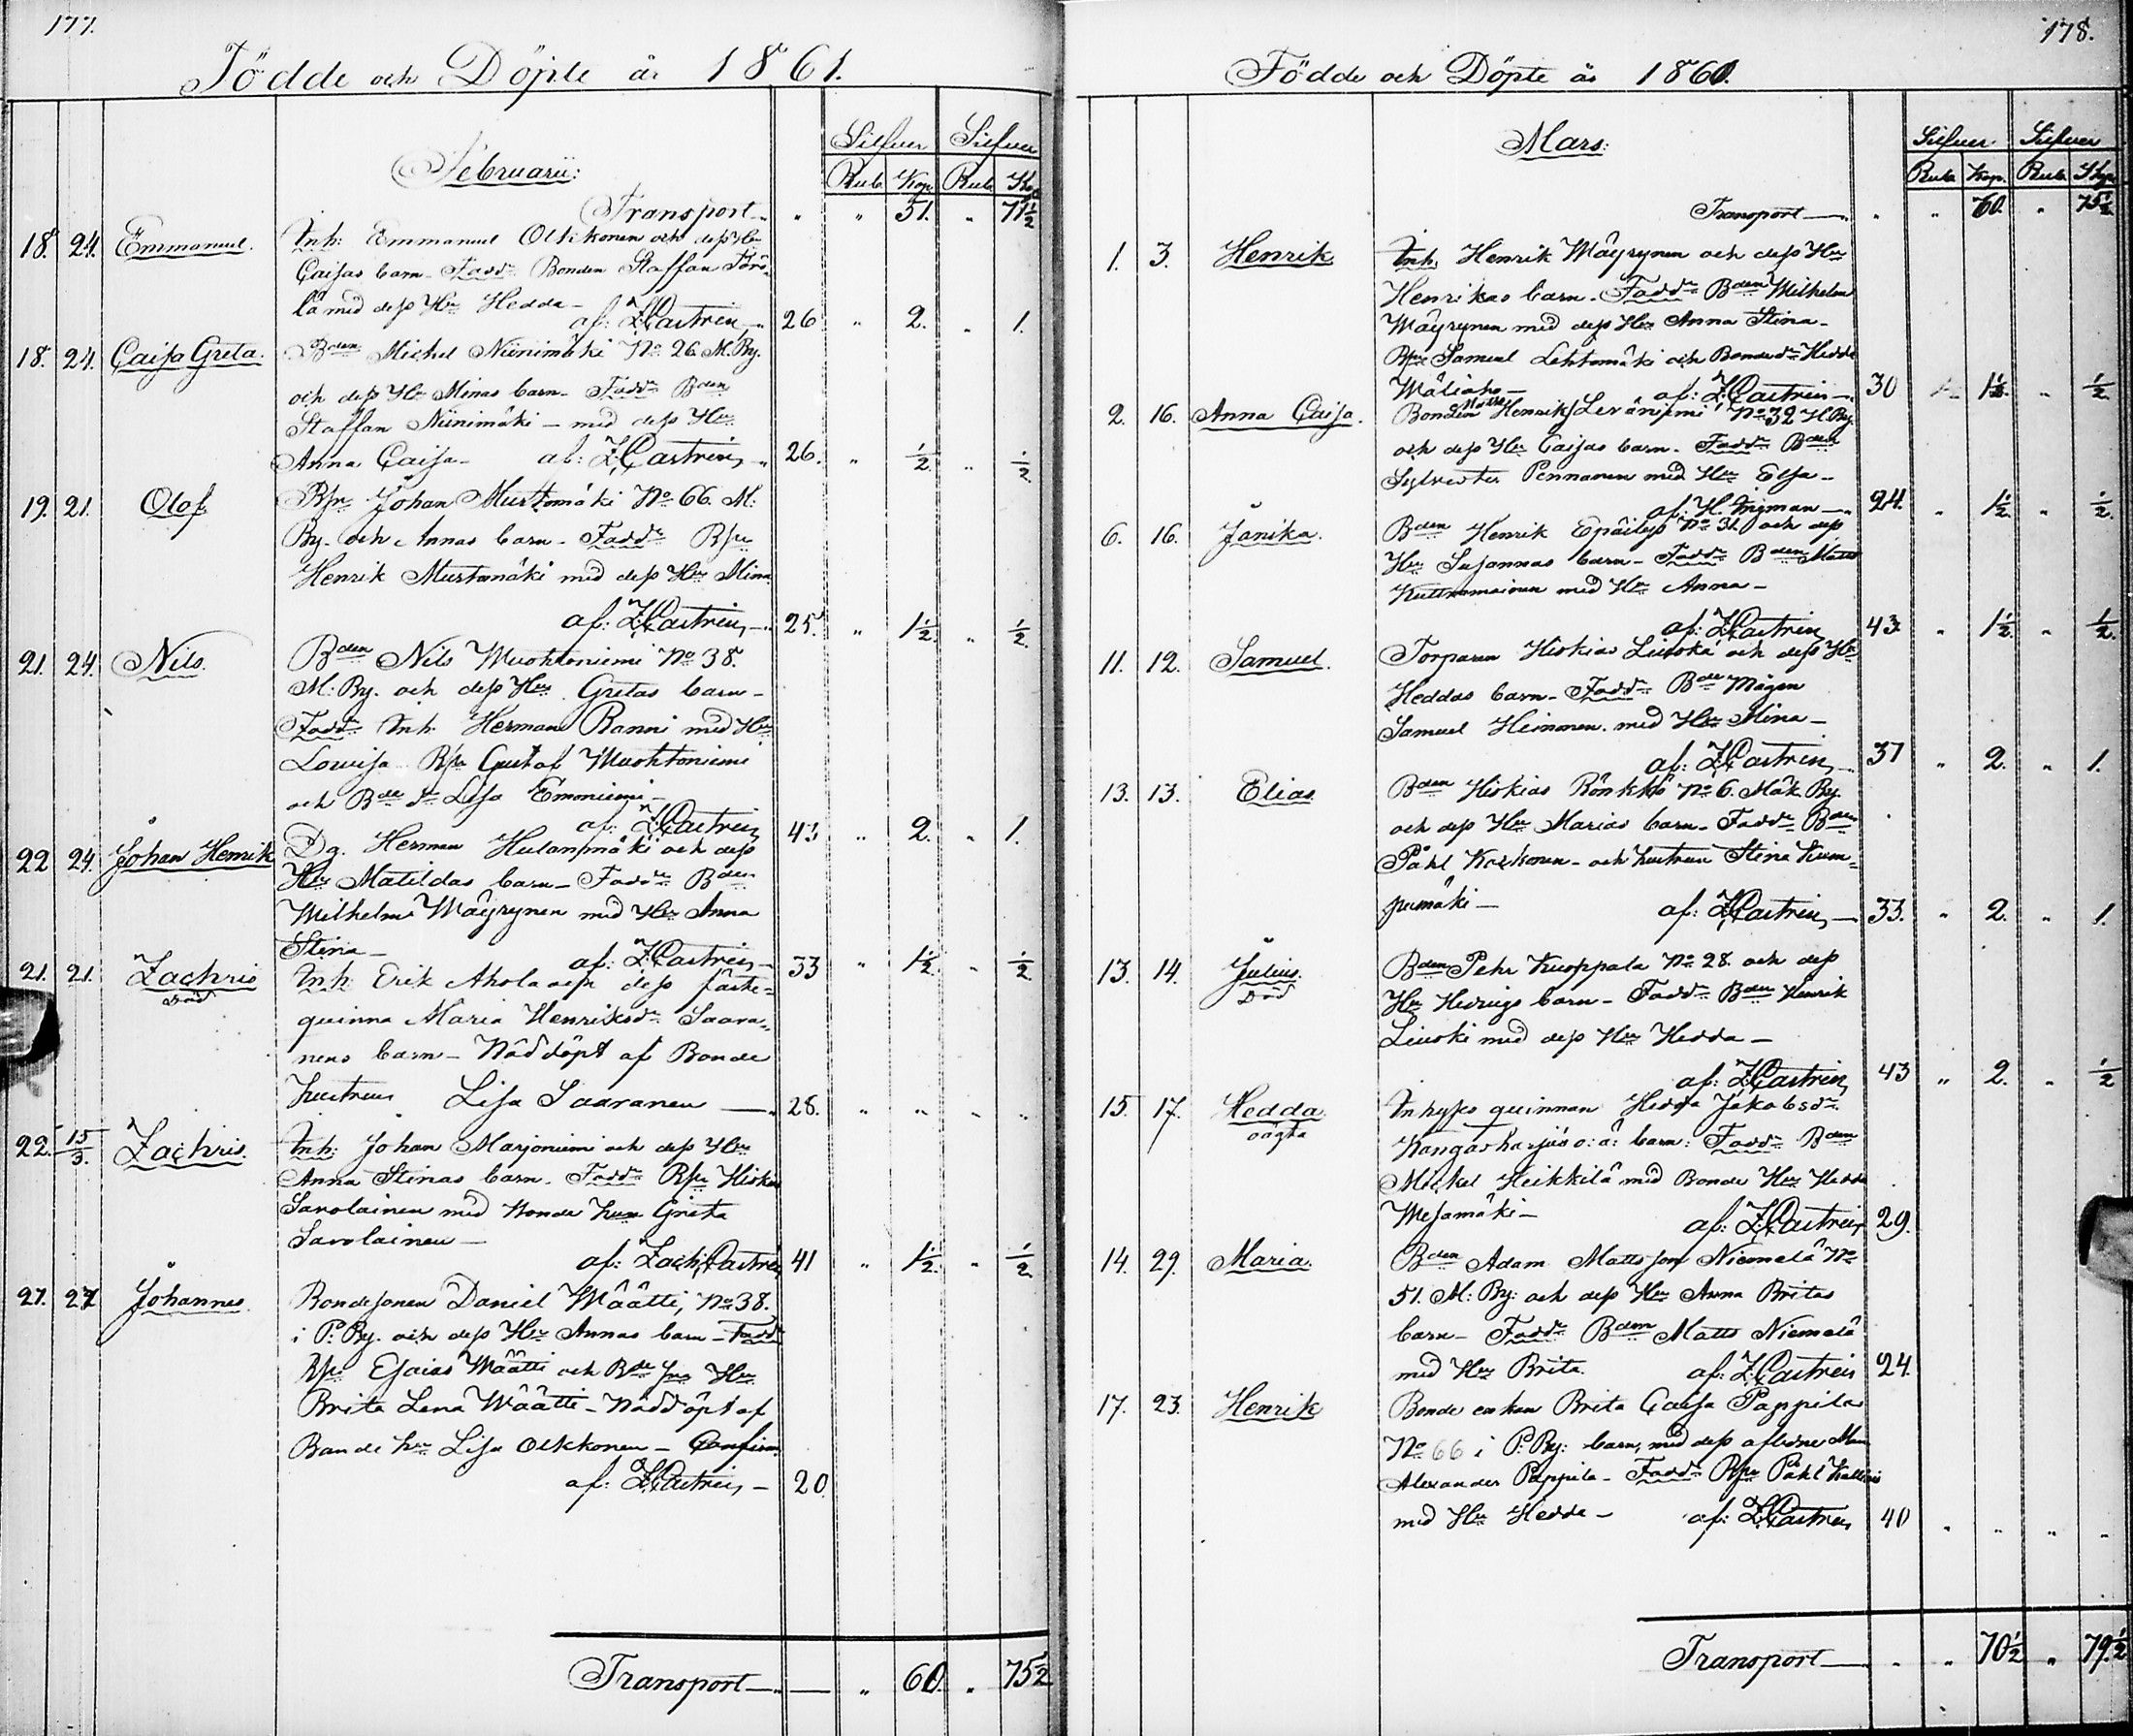 177.
Födde och Döpte år 1861.
Silfver Silfver
Februarii:
Rub. Kop. Rub. Kop.
Transport — „ „ 51. „ 71½
18. 24. Emmanuel. Inh: Emmanuel Olkkonen och dess Hu
Caisas barn – Fadd: Bonden Staffan Törö-
lä med dess Hu Hedda –
af: Z. Castrén, – 26 „ 2. „ 1.
18. 24. Caisa Greta. Bden Michel Niinimäki No 26 M. By.
och dess Hu Minas barn – Fadd: Bden
Staffan Niinimäki – med dess Hu
Anna Caisa – af: Z. Castrén, „ 26. „ ½ „ ½
19. 21. Olof. Bsn Johan Mustomäki No 66. M:
By. och Annas barn – Fadd:
Henrik Mustamäki med dess Hu Mina
af: Z. Castrén, – 25. „ 1½ „ ½
21. 24. Nils. Bden Nils Muohtoniemi No 38.
M: By. och dess Hu Gretas barn –
Fadd: Inh. Herman Ranni med Hu
Lovisa Gustaf Muohtoniemi
och Bde dr Lisa Emoniemi –
af: Z. Castrén 43 „ 2. „ 1.
22 24. Johan Henrik Dg. Herman Hulanmäki och dess
Hu Matildas barn – Fadd: Bden
Wilhelm Mäyrynen med Hu Anna
Stina – af: Z. Castrén – 33 „ 1½ „ ½
21. 21. Zachris Inh: Erik Ahola och dess fäste-
Död
qvinna Maria Henriksdr Saara-
nens barn – Nöddöpt af Bonde
hustrun Lisa Saaranen —. 28. „ „ „ „
22. 15/3. Zachris. Inh: Johan Marjoniemi och dess Hu
Anna Stinas barn. Fadd:
Savolainen med Bonde hun Greta
Savolainen –
af: Zach: Castrén 41 „ 1½ „ ½
27. 27 Johannes. Bondesonen Daniel Määtti, No 38.
i P. By. och dess Hu Annas barn – Fadd:
Esaias Määtti och Bde Hu
Brita Lena Määtti – Nöddöpt af
Bonde hu Lisa Olkkonen – Confirm.
af: Z. Castrén, – 20.
Transport — — „ 60. „ 75½
178.
Födde och Döpte år 1860.
Silfver Silfver
Mars:
Rub. Kop. Rub. Kop.
Transport — „ „ 60. „ 75½
1. 3. Henrik Inh. Henrik Mäyrynen och dess Hu
Henrikas barn – Fadd: Bden Wilhelm
Mäyrynen med dess Hu Anna Stina –
Samuel Lehtomäki och Bondedr Hedda
Mäliaho – af: Z. Castrén – 30 1½ „ ½
2. 16. Anna Caisa. Bonden Henrik Leväniemi No 32 H. By.
och dess Hu Caisas barn – Fadd: Bden
Sylvester Pennanen med Hu Elsa –
af. H. Ingman – 24. „ 1½ „ ½
6. 16. Janika. Bden Henrik Epäilys No 31 och dess
Hu Susannas barn – Fadd: Bden Matts
med Hu Anna –
af: Z. Castrén 43 „ 1½ „ ½
11. 12. Samuel. Torparen Hiskias Liuski och dess Hu
Heddas barn – Fadd: Bde Mågen
Samuel Heinonen med Hu Stina –
af: Z. Castrén – 37 „ 2. „ 1.
13. 13. Elias Bden Hiskias Rönkkö No 6. Mäk. By.
och dess Hu Marias barn – Fadd: Bden
Påhl Korhonen – och hustrun Stina Kum-
pumäki – af: Z. Castrén, – 33. „ 2. „ 1.
13. 14. Julius. Bden Pehr Kuoppala No 28. och dess
Död
Hu Hedvigs barn – Fadd: Bden Henrik
Liuski med dess Hu Hedda –
af: Z. Castrén, 43 „ 2. „ ½
15. 17. Hedda. Inhyses qvinnan Hedda Jakobsdr
oägta
Kangasharjus o: ä: barn: Fadd: Bden
Michel Heikkilä med Bonde Hu Hedda
Mesamäki – af: Z. Castrén 29.
14. 29. Maria. Bden Adam Mattsson Niemelä No
51. M: By: och dess Hu Anna Britas
barn – Fadd: Bden Matts Niemelä
med Hu Brita. af: Z. Castrén 24.
17. 23. Henrik Bonde enkan Brita Caisa Pappilas
No 66 i P: By: barn, med dess aflidne Man
Alexander Pappila – Fadd: Påhl
med Hu Hedda – af: Z. Castrén 40 „ „ „ „
Transport — „ „ 70½ „ 79½